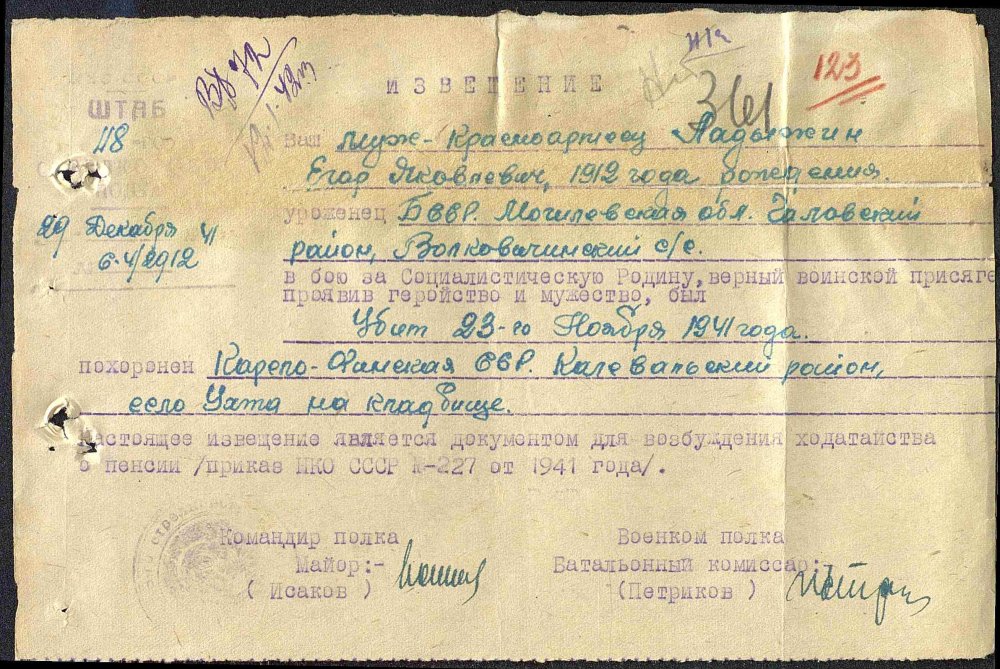 ИЗВЕЩЕНИЕ
361
123
ШТАБ
118
Ваш муж-Красноармеец Ладыжкин
Егор Яковлевич, 1912 года рождения.
уроженец БССР. Могилевская обл.
район, Волковичинский с/с.
29 Декабря 41
6.4/2912
в бою за Социалистическую Родину, верный воинской присяге
проявив геройство и мужество, был
Убит 23-го Ноября 1941 года.
похоронен Карело-Финская ССР. Калевальский район,
село Ухта на кладбище.
Настоящее извещение является документом для возбуждения ходатайства
о пенсии /приказ НКО СССР №-227 от 1941 года/.
Командир полка
Майор:-
( Исаков )
Военком полка
Батальонный комиссар:-
(Петриков )